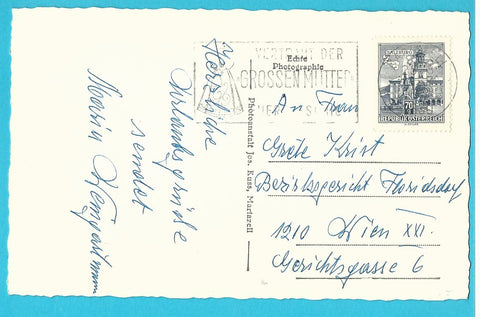 Herzliche
Urlaubsgrüße
sendet
Maria Weingartmann
VERTRAUT DER
GROSSEN MUTTER
Echte
Photographie
Photoanstalt Jos. Kuss, Mariazell
SALZBURG
70
REPUBLIK ÖSTERREICH
An Frau
Grete Krist
Bezirksgericht Floridsdorf
1210 Wien XXI.
Gerichtsgasse 6